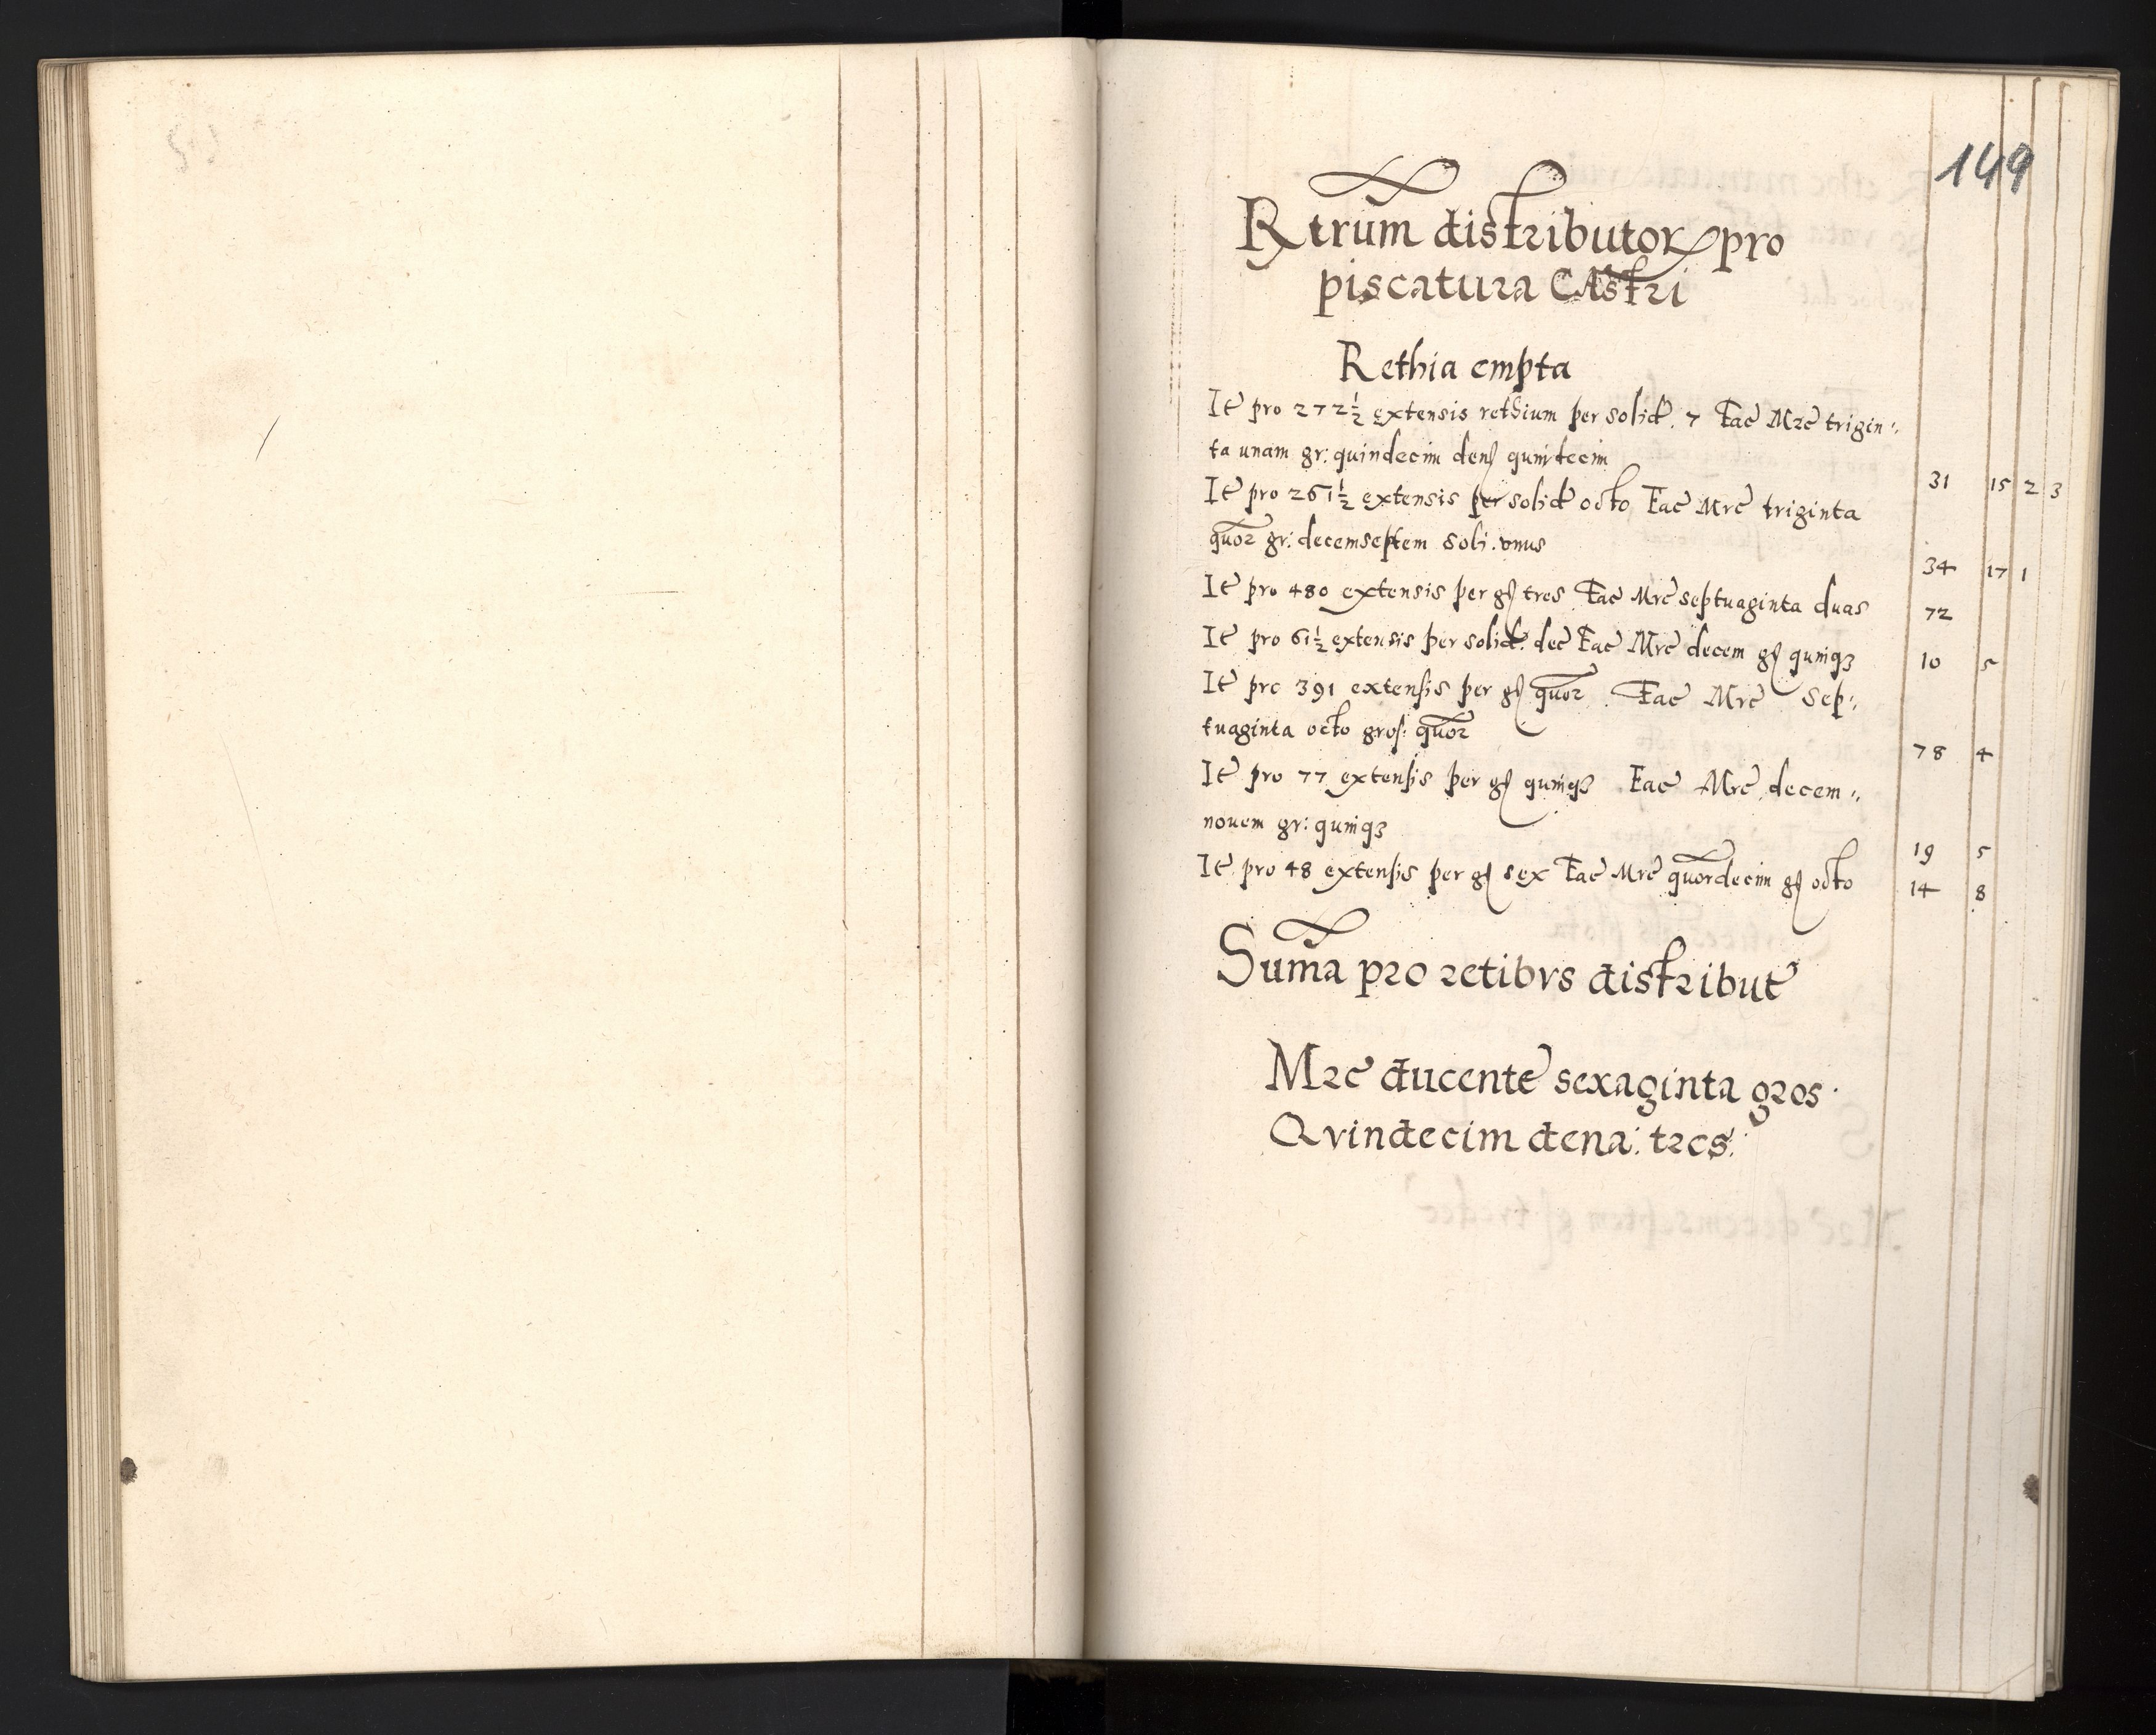 149
Rerum distributoꝝ pro
piscatura Castri
Rethia empta
Itē pro 272½ extensis rethium per solid. 7 Fac̄ Mrc̄ trigin⸗
ta unam gr: quindecim den quindecim 31 15 2 3
Itē pro 261½ extensis per solid octo Fac̄ Mrc̄ triginta
quor gr: decemseptem soli. vnus 34 17 1
Itē pro 480 extensis per gꝭ tres Fac̄ Mrc̄ septuaginta duas 72
Itē pro 61½ extensis per solid. dec̄ Fac̄ Mrc̄ decem gꝭ quinqꝫ 10 5
Itē pro 391 extensis per gꝭ quor Fac̄ Mrc̄ Sep⸗
tuaginta octo gros: quor 78 4
Itē pro 77 extensis per gꝭ quinqꝫ Fac̄ Mrc̄ decem⸗
nouem gr: quinqꝫ 19 5
Itē pro 48 extensis per gꝭ sex Fac̄ Mrc̄ quordecim gꝭ octo 14 8
Sum̄a pro retibvs distribut̄
Mrc̄ ducente sexaginta gros.
Qvindecim dena: tres: